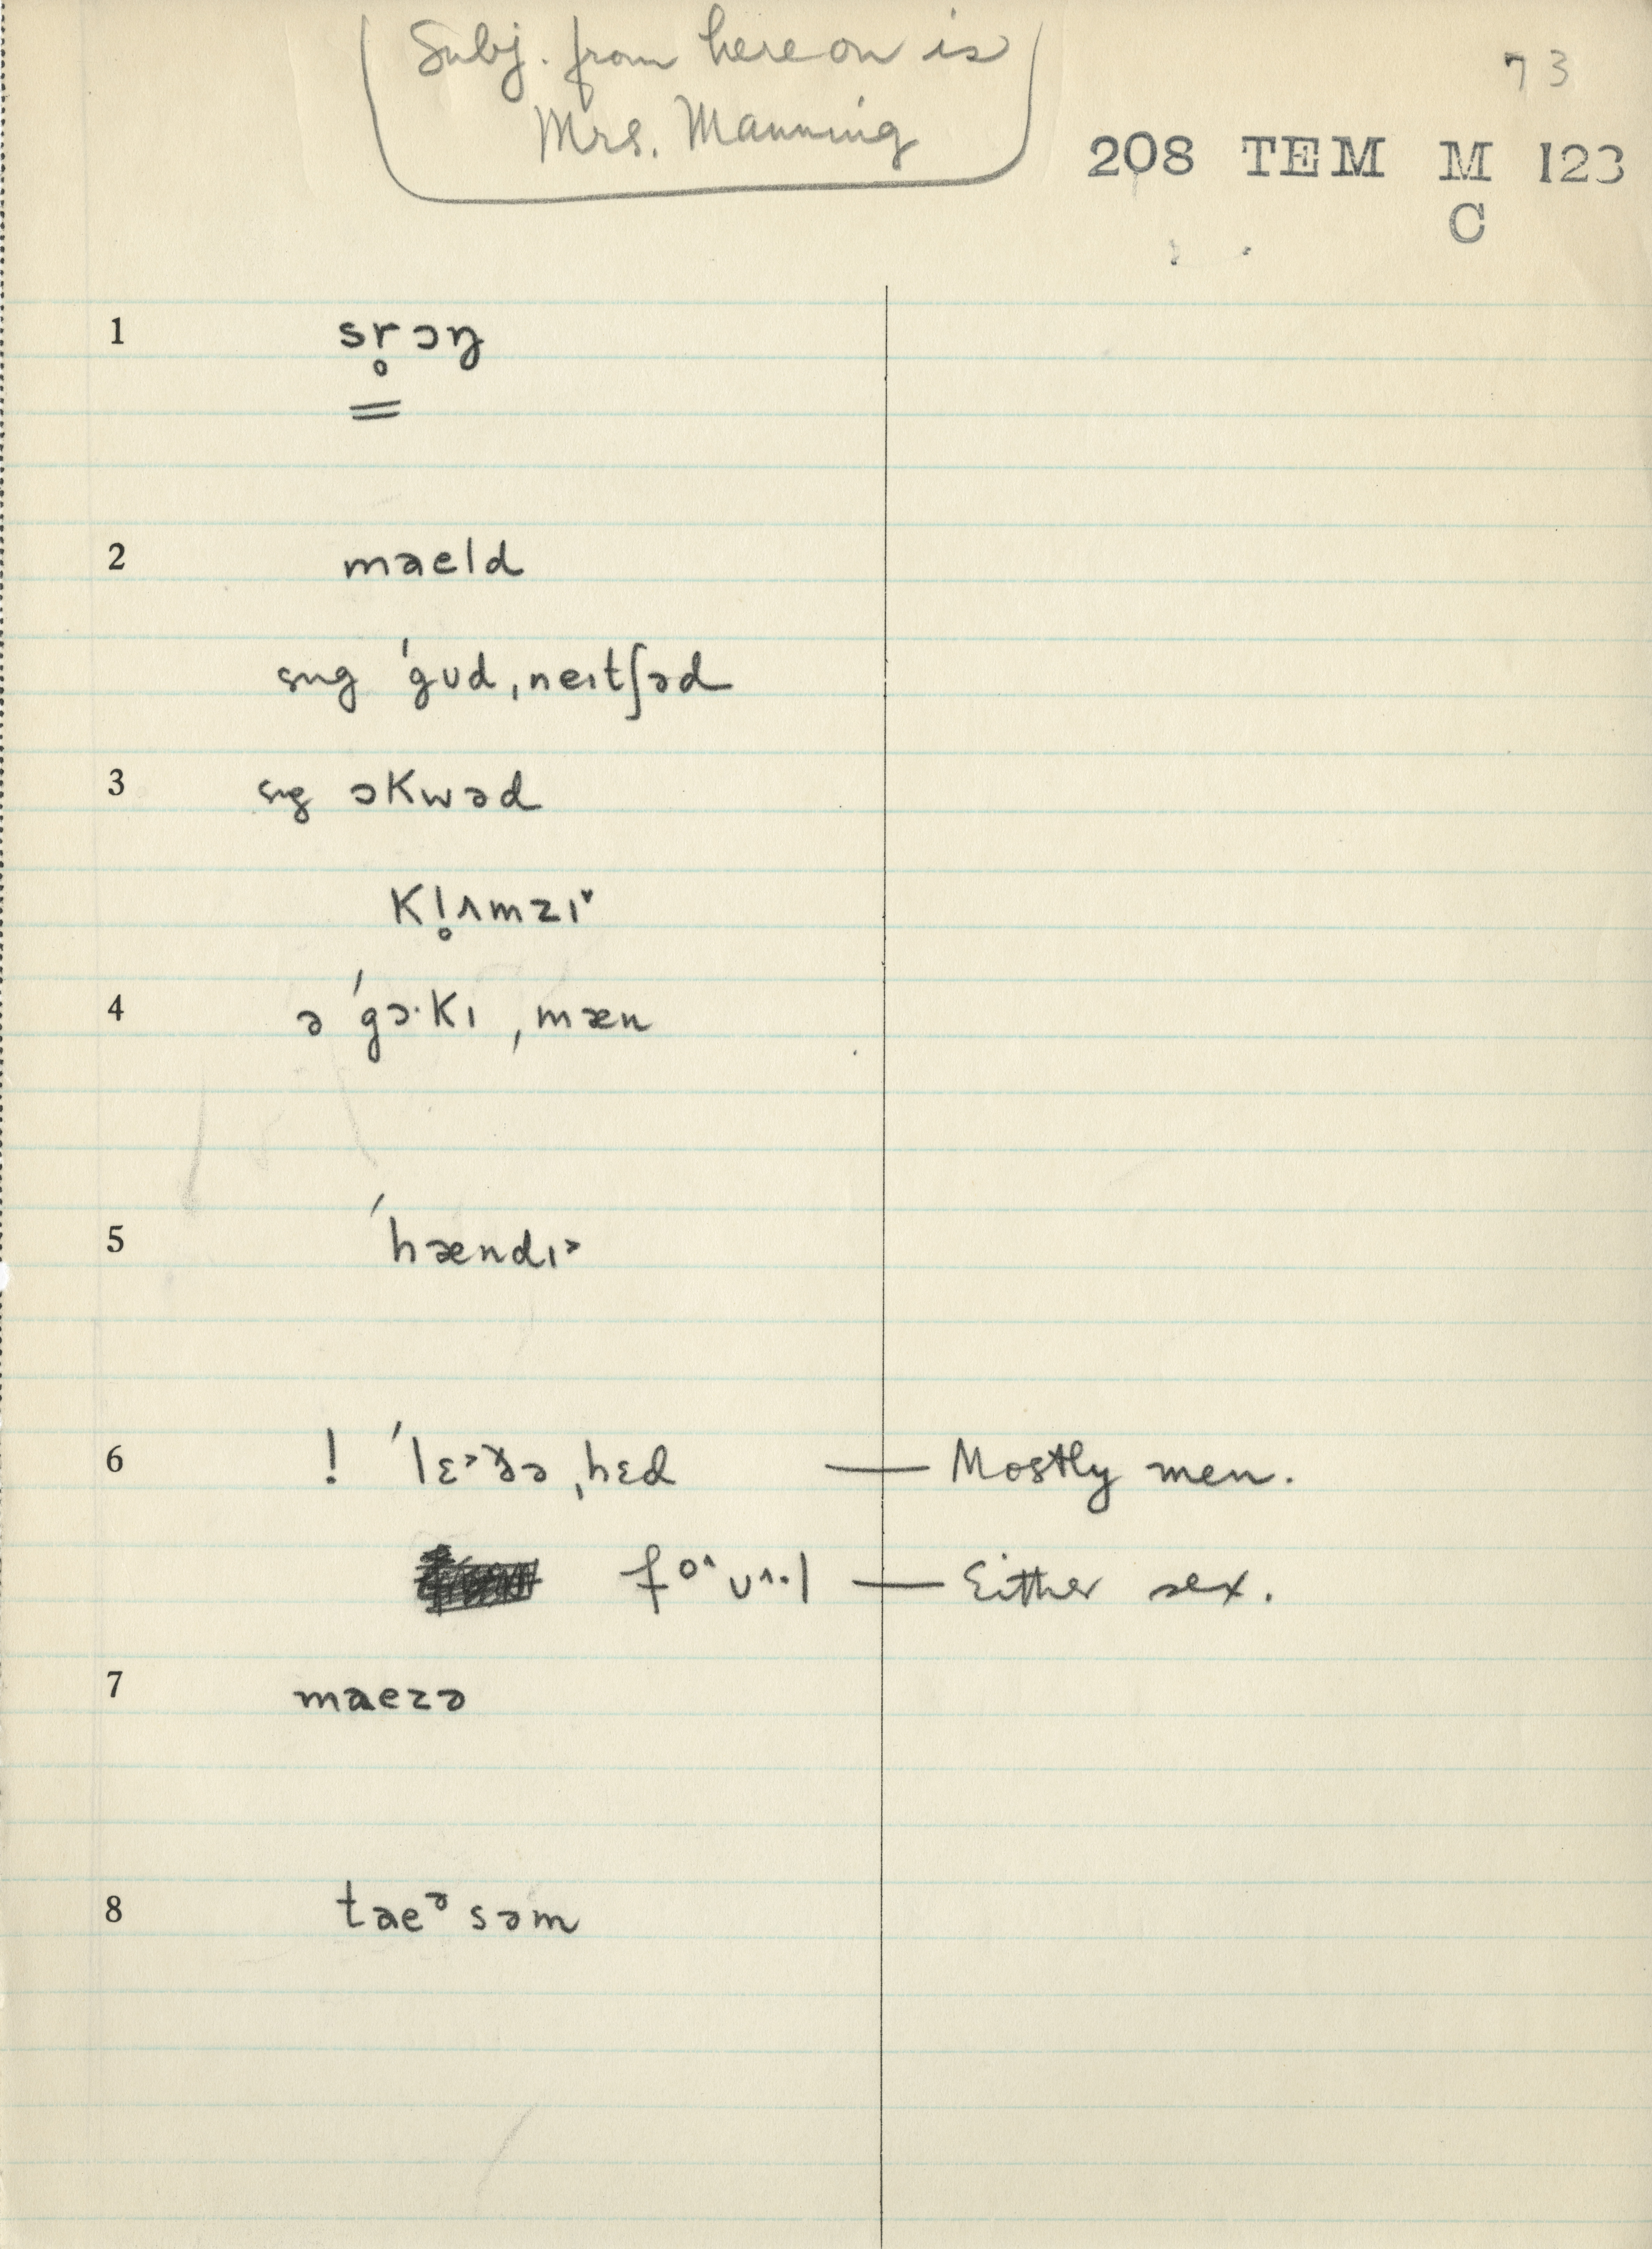 Subj. from here on is
Mrs. Manning
73
208 TEM M 123
C
1 sr̥ɔŋ
2 maeld
sug ˈgʊd ˌneɪtʃəd
3 sug ɔkwəd
kl̥ʌmzɪ˅
4 ə ˈgɔ·kɪ ˌmæn
5 ˈhændɪ˃
6 ! ˈlɛ˃ðə ˌhɛd — Mostly men.
fo^ʊ^·l — Either sex.
7 maezə
8 taeᵊsəm